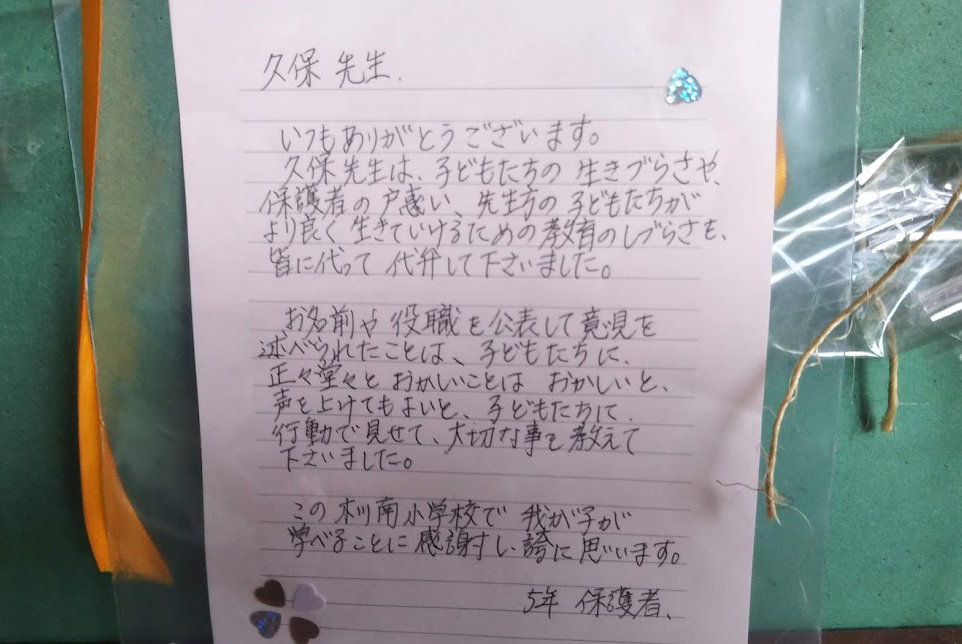 久保 先生.
いつもありがとうございます。
久保先生は、子どもたちの 生きづらさや、
保護者の 戸惑い、先生方の 子どもたちが
より良く 生きていけるための 教育のしづらさを、
皆に代って 代弁して下さいました。
お名前や 役職を公表して 意見を
述べられたことは、子どもたちに、
正々堂々と おかしいことは おかしいと、
声を上げてもよいと、子どもたちに
行動で見せて、大切な事を教えて
下さいました。
この 木川南小学校で 我が子が
学べることに 感謝し、誇に 思います。
5年 保護者、